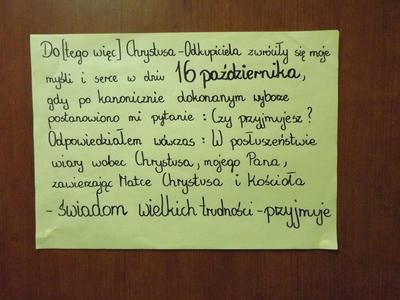 Do [tego więc] Chrystusa - Odkupiciela zwróciły się moje
myśli i serce w dniu 16 października,
gdy po kanonicznie dokonanym wyborze
postanowiono mi pytanie : Czy przyjmujesz ?
Odpowiedziałem wówczas : W posłuszeństwie
wiary wobec Chrystusa, mojego Pana,
zawierzając Matce Chrystusa i Kościoła
- świadom wielkich trudności - przyjmuje